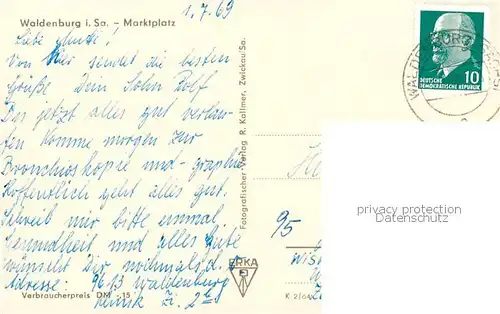 1.7.63
Waldenburg i. Sa. – Marktplatz
Liebe Mutti!
Von hier sendet die besten
Grüße Dein Sohn Rolf
Bis jetzt alles gut verlau-
fen komme morgen zur
Bronchioskopie und -graphie
Hoffentlich geht alles gut.
Schreib mir bitte einmal
Gesundheit und alles Gute
wünscht Dir nochmals d.
Adresse: 9613 Waldenburg
Klinik Zi. 2
Verbraucherpreis DM -,15
Fotografischer Verlag R. Kallmer, Zwickau/Sa.
ERKA
K 2/6
10
DEUTSCHE
DEMOKRATISCHE REPUBLIK
WALDENBURG
95
privacy protection
Datenschutz